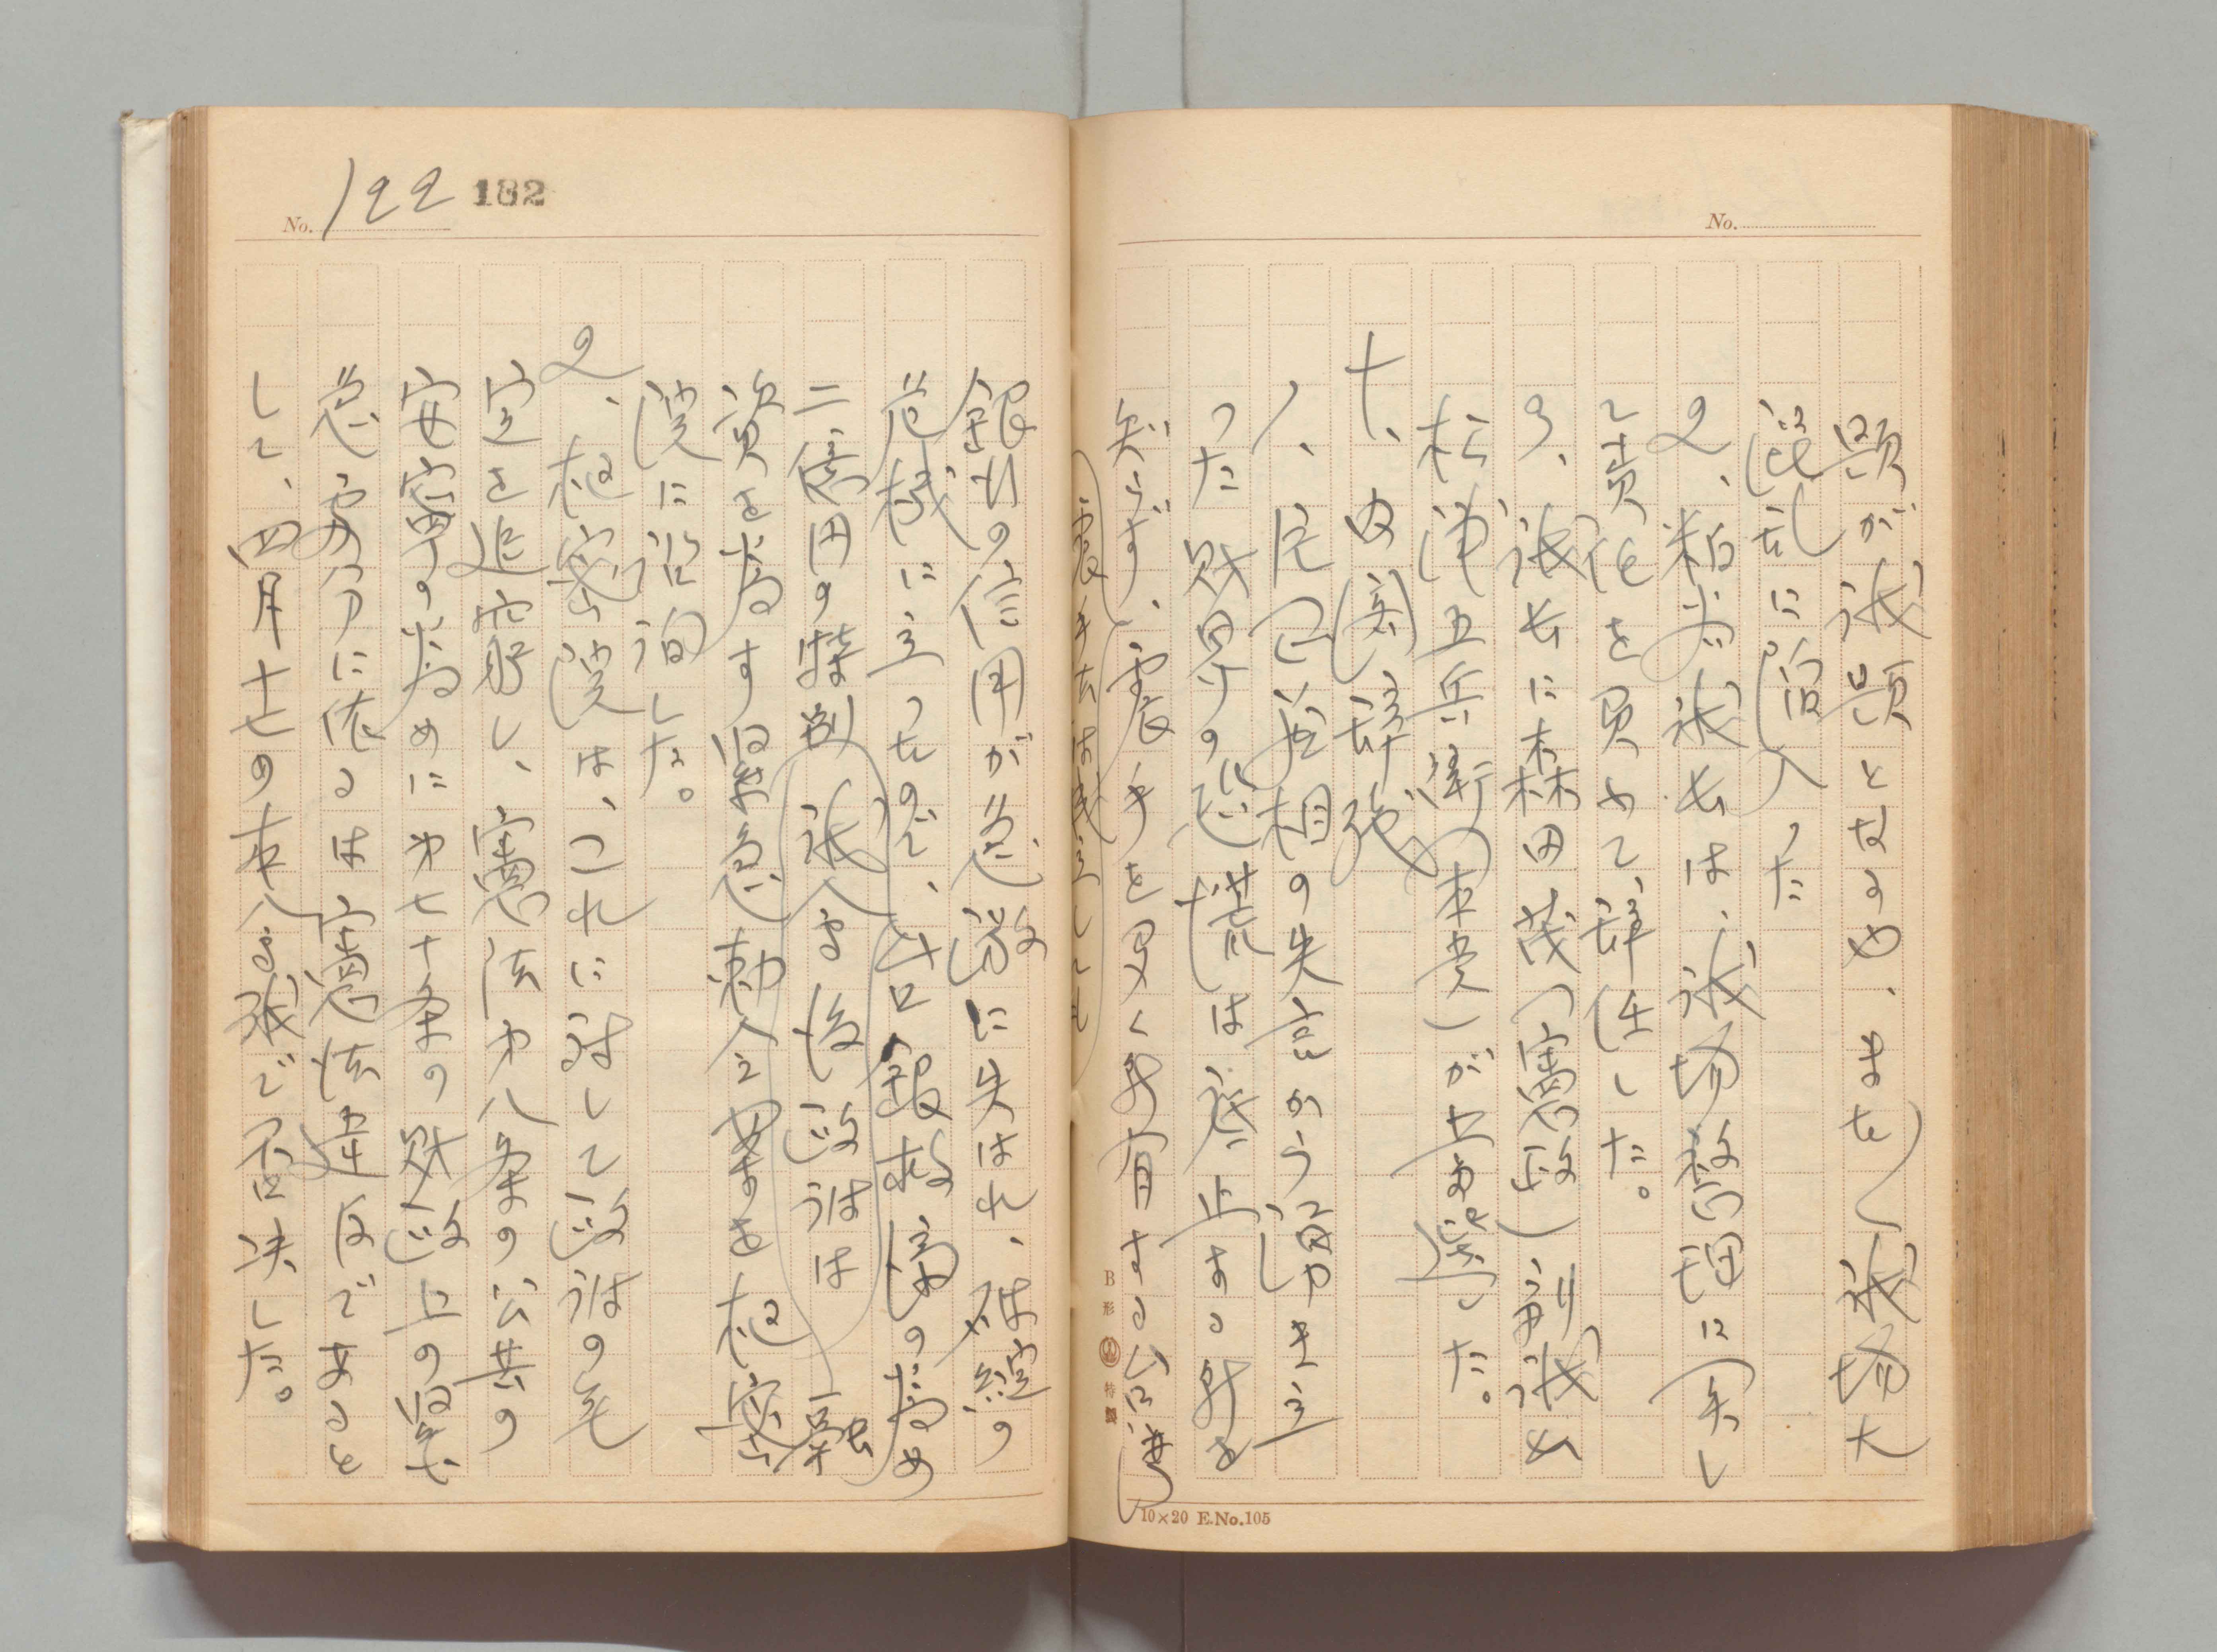 No.
題が議題となすや、またく議場大
混乱に陥入った
2、粕谷議長は、議場整理に関し
て責任を負ふて、辞任した。
3、議長に森田茂(憲政)副議長
松浦五兵衛(本党)が当選した。
十、内閣辞職
1、片岡蔵相の失言から湧き立
った財界の恐慌は底止する所を
知らず、震手を多く所有する台湾
震手法は成立しても
B形 特製
10×20 E.No.105
No. 122 182
銀行の信用が急激に失はれ、破綻の
危機に立ったので、台銀救済の為め
二億円の特別融
議会後政府は
資を為す緊急勅令案を枢密
院に諮詢した。
2、枢密院は、これに対して政府の
定を追窮し、憲法第八条の公共の
安寧の為めに第七十条の財政上の緊
急処分に依るは憲法違反であると
して、四月十七の本会議で否決した。